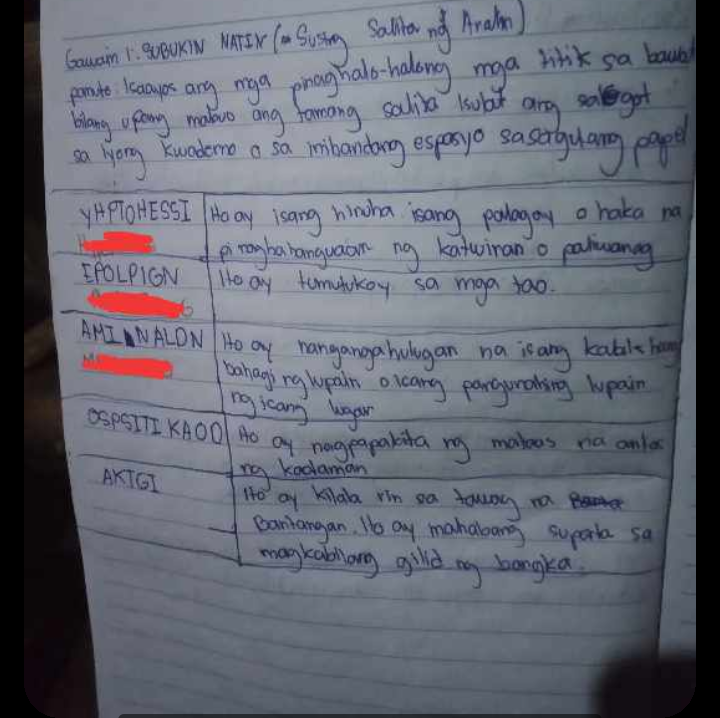 Gawain 1: SUBUKIN NATIN (Susing Salita ng Aralin)
panuto: Isaayos ang mga pinaghalo-halong mga titik sa bawat
bilang upang mabuo ang tamang salita Isulat ang sagot
sa iyong kwaderno o sa mibandang espasyo sasagutang papel
YHPTOHESSI
Ito ay isang hinuha. isang palagay o haka na
pinaghahanguaan ng katwiran o paliwanag
IPOLPIGN
Ito ay tumutukoy sa mga tao.
AMINALDN
Ito ay nangangahulugan na isang
bahagi ng lupain o isang pangunahing lupain
ng isang lugar
OSPSITI KAOD
Ito ay nagpapakita ng mataas na antas
ng kaalaman
AKIGI
Ito ay kilala rin sa tawag na
Bantangan. Ito ay mahabang suporta sa
magkabilang gilid ng bangka.